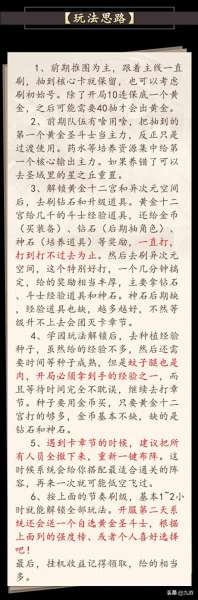 【玩法思路】
1、前期推图为主，跟着主线一直
刷，抽到核心卡就保留，也可以考虑
刷初始号。除了开局10连保底一个黄
金，之后可能需要40抽才会出黄金。
2、前期队伍有啥用啥，把抽到的
第一个黄金圣斗士当主力，反正只是
过渡使用。药水等培养资源集中给第
一个核心输出主力。如果养错了可以
去圣域里的星之丘重置。
3、解锁黄金十二宫和异次元空间
后，去刷钻石和升级道具。黄金十二
宫给几千的斗士经验道具，还给金币
（买装备）、钻石（后期抽角色）、
神石（培养道具）等奖励，一直打，
打到打不过去为止。然后去刷异次元
空间，这个特别好打，一个几分钟搞
定，给的奖励相当丰厚，主要拿钻石
、斗士经验道具和神石。神石后期缺
，经验道具也缺，越多越好，不然等
级升不上去会团灭卡章节。
4、学园玩法解锁后，去种植经验
种子，虽然给的经验不多，然后还需
要时间等种子成熟，但是蚊子腿也是
肉，开局必须拿到手的经验之一，而
且等待时间完全不耽误，继续去打章
节。种子要用金币买，只要黄金十二
宫打的够多，金币基本不缺，缺的是
钻石和神石。
5、遇到卡章节的时候，建议把所
有人员全撤下来，重新一键布阵。这
时候系统会给你搭配最适合通关的阵
容，再来一次就可能低空飞过。
6、按上面的节奏刷级，基本1~2小
时就能解锁全部玩法。开服第二天系
统还会送一个自选黄金圣斗士，根据
上面列的强度榜、或者个人喜好选择
吧！
最后，挂机收益记得领取，给的相当
多。
头条 @九游